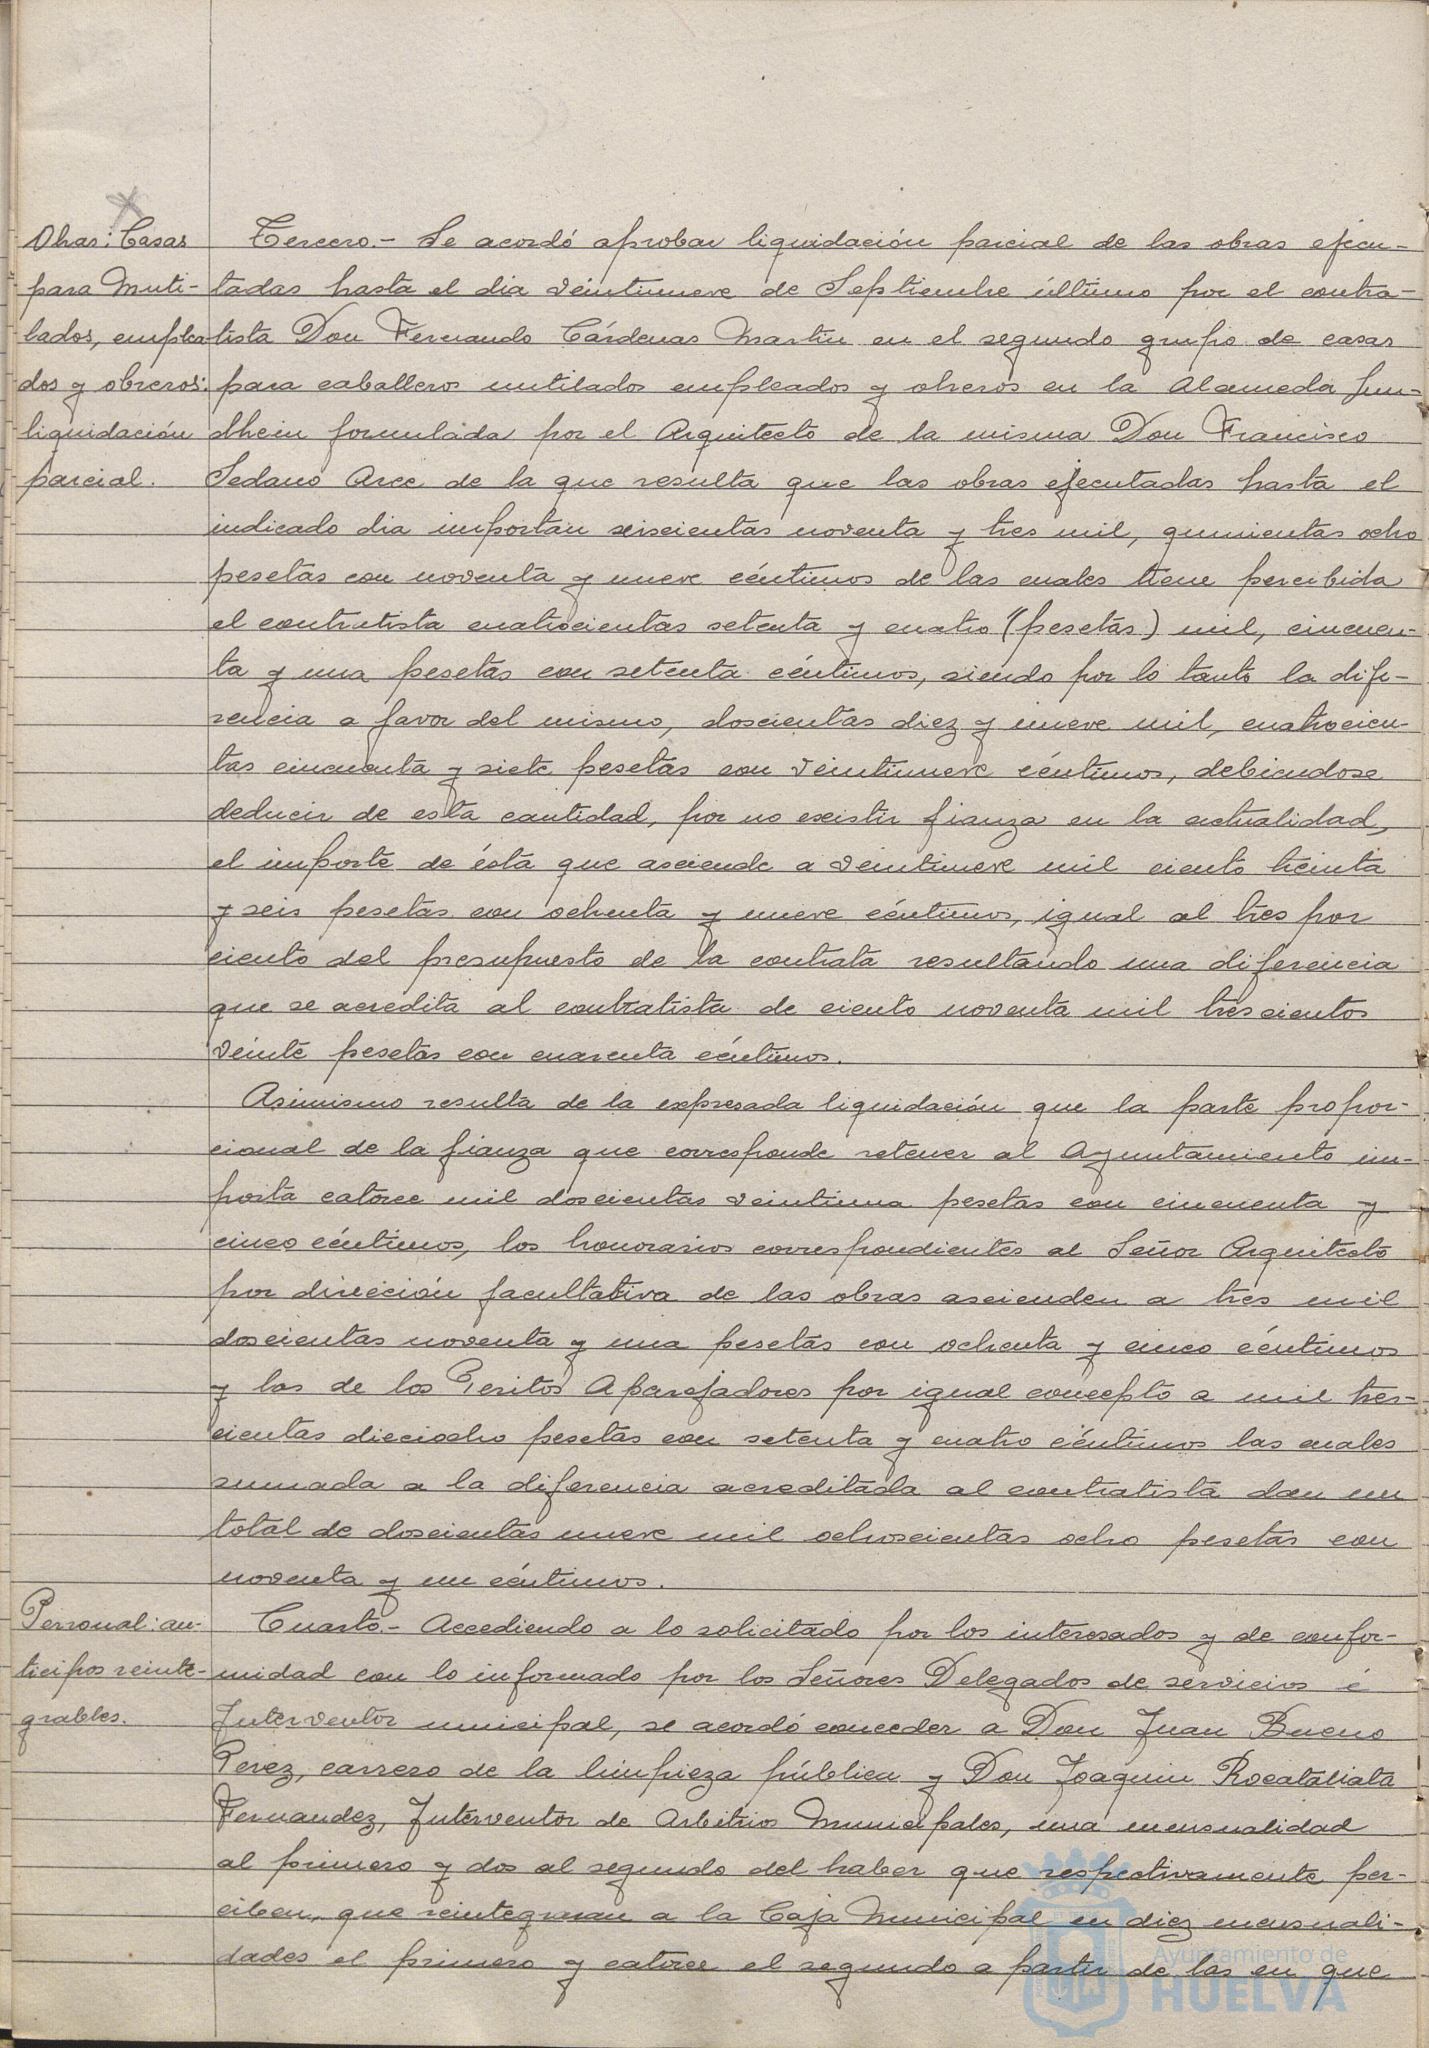 Obras: Casas
para Muti-
lados, emplea-
dos y obreros:
liquidación
parcial.
Tercero.- Se acordó aprobar liquidación parcial de las obras ejecu-
tadas hasta el dia veintinueve de Septiembre último por el contra-
tista Don Fernando Cárdenas Martin en el segundo grupo de casas
para caballeros mutilados empleados y obreros en la Alameda Sun-
dhein formulada por el Arquitecto de la misma Don Francisco
Sedano Arce de la que resulta que las obras ejecutadas hasta el
indicado dia importan seiscientas noventa y tres mil, quinientas ocho
pesetas con noventa y nueve céntimos de las cuales tiene percibida
el contratista cuatrocientas setenta y cuatro (pesetas) mil, cincuen-
ta y una pesetas con setenta céntimos, siendo por lo tanto la dife-
rencia a favor del mismo, doscientas diez y nueve mil, cuatrocien-
tas cincuenta y siete pesetas con veintinueve céntimos, debiendose
deducir de esta cantidad, por no existir fianza en la actualidad,
el importe de ésta que asciende a veintinueve mil ciento treinta
y seis pesetas con ochenta y nueve céntimos, igual al tres por
ciento del presupuesto de la contrata resultando una diferencia
que se acredita al contratista de ciento noventa mil trescientos
veinte pesetas con cuarenta céntimos.
Asimismo resulta de la expresada liquidación que la parte propor-
cional de la fianza que corresponde retener al Ayuntamiento im-
porta catorce mil doscientas veintiuna pesetas con cincuenta y
cinco céntimos, los honorarios correspondientes al Señor Arquitecto
por dirección facultativa de las obras ascienden a tres mil
doscientas noventa y una pesetas con ochenta y cinco céntimos
y las de los Peritos Aparejadores por igual concepto a mil tres-
cientas dieciocho pesetas con setenta y cuatro céntimos las cuales
sumada a la diferencia acreditada al contratista dan un
total de doscientas nueve mil ochoscientas ocho pesetas con
noventa y un céntimos.
Personal: an-
ticipos reinte-
grables.
Cuarto.- Accediendo a lo solicitado por los interesados y de confor-
midad con lo informado por los Señores Delegados de servicios é
Interventor municipal, se acordó conceder a Don Juan Bueno
Perez, carrero de la limpieza pública y Don Joaquin Rocatallata
Fernandez, Interventor de Arbitrios Municipales, una mensualidad
al primero y dos al segundo del haber que respectivamente per-
ciben, que reintegraran a la Caja Municipal en diez mensuali-
dades el primero y catorce el segundo a partir de las en que
Ayuntamiento de
HUELVA